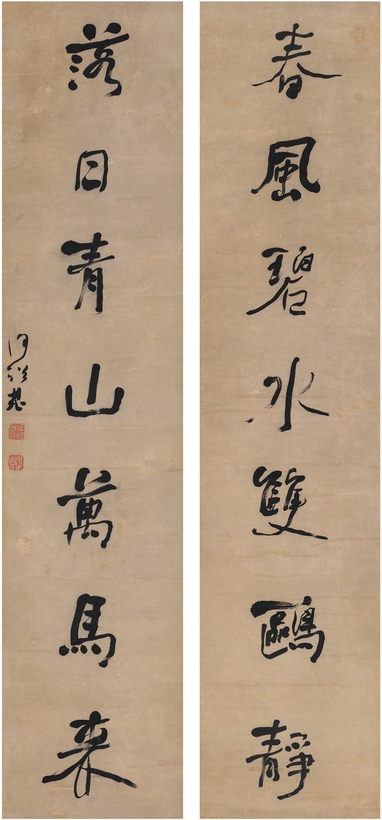 春風碧水雙鷗靜
落日青山萬馬来
何紹基